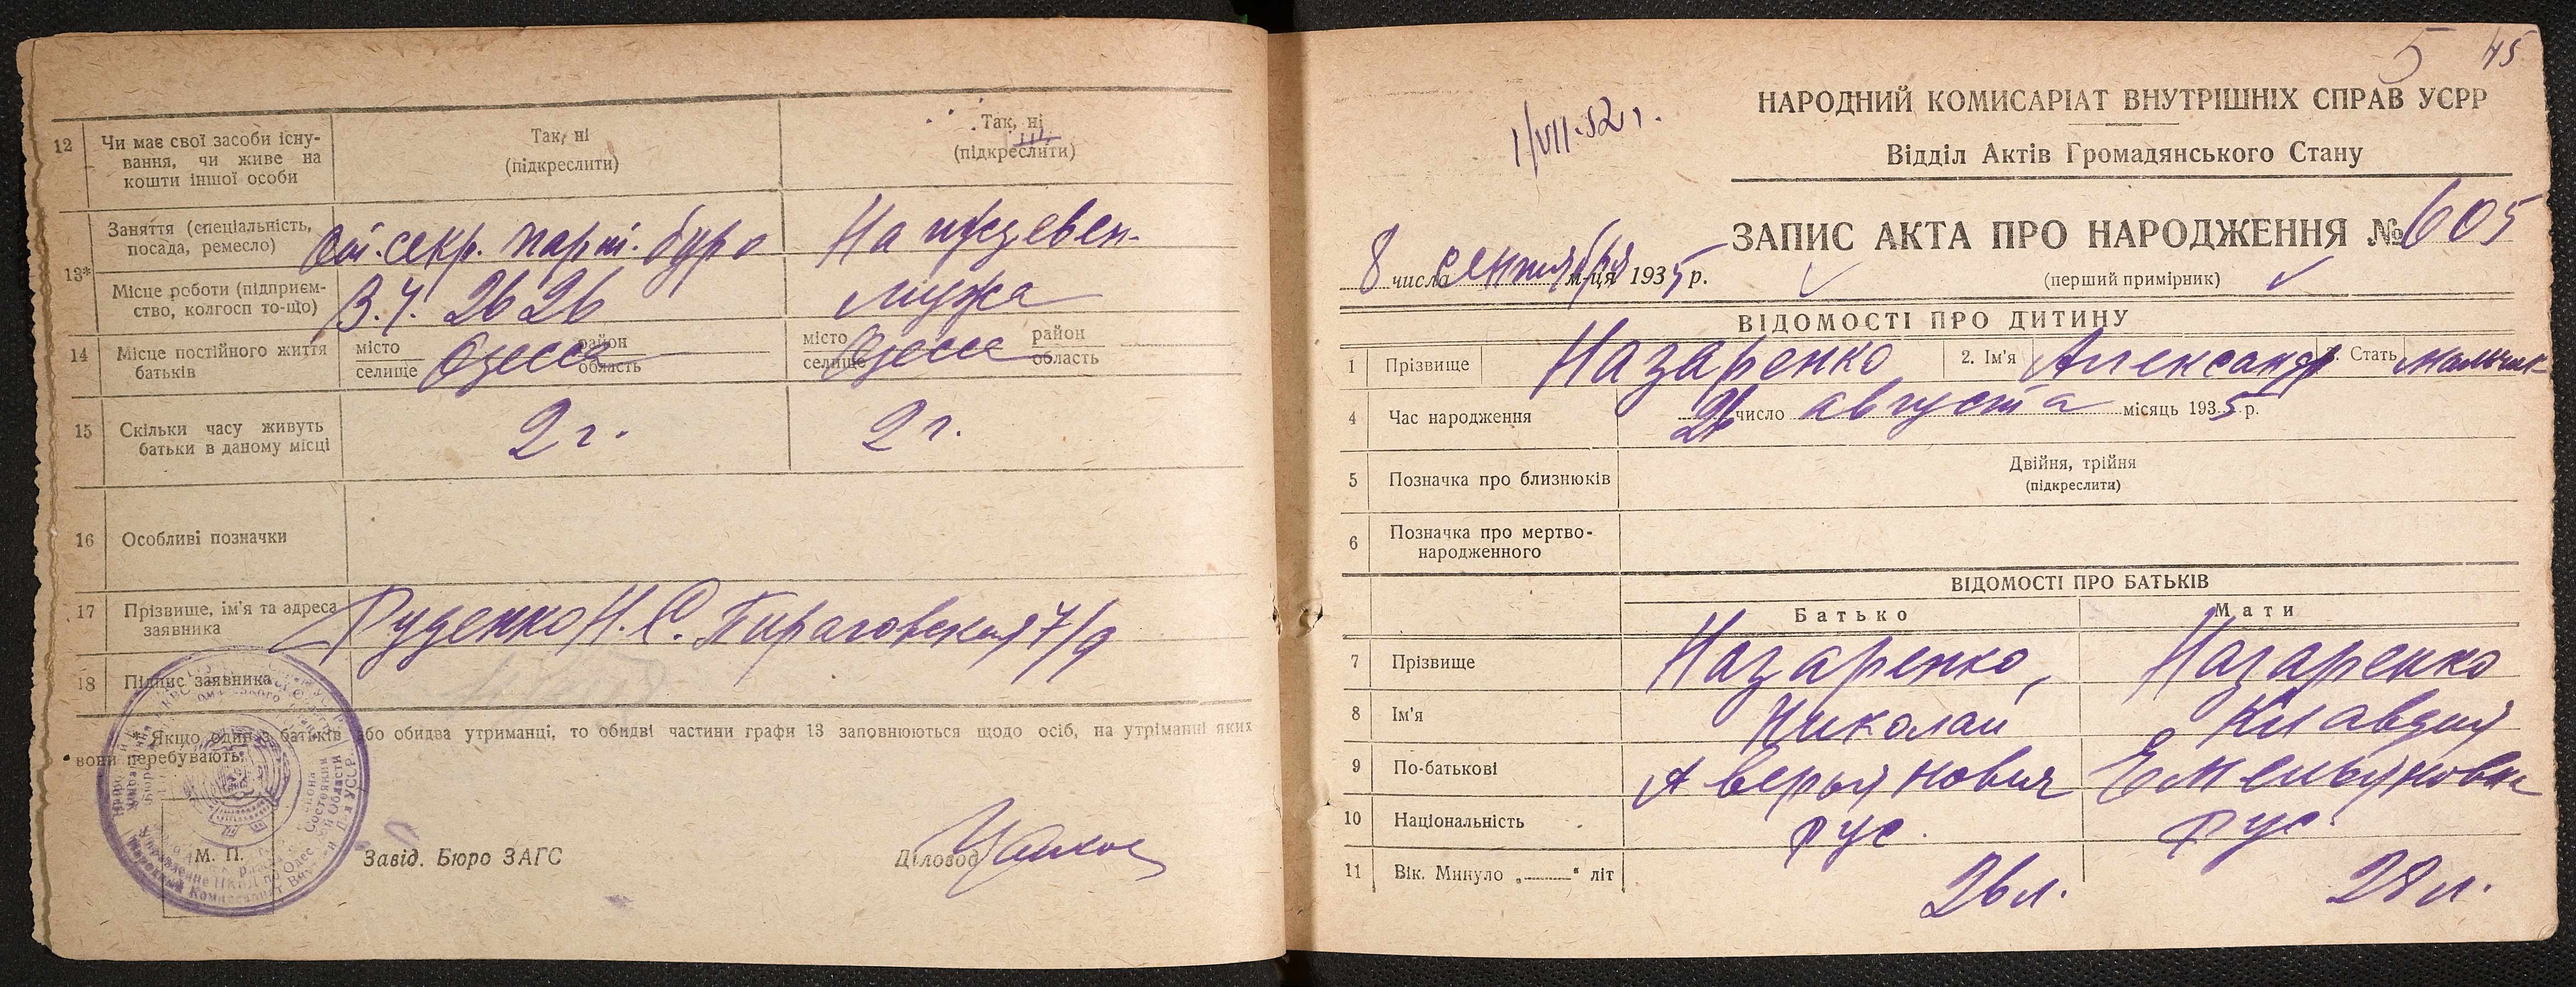 12 Чи має свої засоби існування, чи живе на кошти іншої особи
Так, ні
(підкреслити)
Так, ні
(підкреслити)
13*
Заняття (спеціальність, посада, ремесло)
секр. парт. бюро
На иждевен.
Місце роботи (підприємство, колгосп то-що)
В.Ч. 2626
мужа
14 Місце постійного життя батьків
місто
селище
Одесса
район
область
місто
селище
Одесса
район
область
15 Скільки часу живуть батьки в даному місці
2 г.
2 г.
16 Особливі позначки
17 Прізвище, ім'я та адреса заявника
Руденко Н. С. Пироговская 7/9
18 Підпис заявника
* Якщо один з батьків або обидва утриманці, то обидві частини графи 13 заповнюються щодо осіб, на утриманні яких
вони перебувають.
М. П.
Завід. Бюро ЗАГС
Діловод
5 45
1/VII-52 г.
НАРОДНИЙ КОМИСАРІАТ ВНУТРІШНІХ СПРАВ УСРР
Відділ Актів Громадянського Стану
ЗАПИС АКТА ПРО НАРОДЖЕННЯ № 605
8 числа сентября м-ця 1935 р.
(перший примірник)
ВІДОМОСТІ ПРО ДИТИНУ
1 Прізвище Назаренко 2. Ім'я Александр 3. Стать мальчик
4 Час народження число августа місяць 1935 р.
5 Позначка про близнюків
Двійня, трійня
(підкреслити)
6 Позначка про мертвонародженного
ВІДОМОСТІ ПРО БАТЬКІВ
Батько
Мати
7 Прізвище Назаренко, Назаренко
8 Ім'я Николай Клавдия
9 По-батькові Аверьянович Емельяновна
10 Національність рус. рус.
11 Вік. Минуло „ — “ літ 26 л. 28 л.